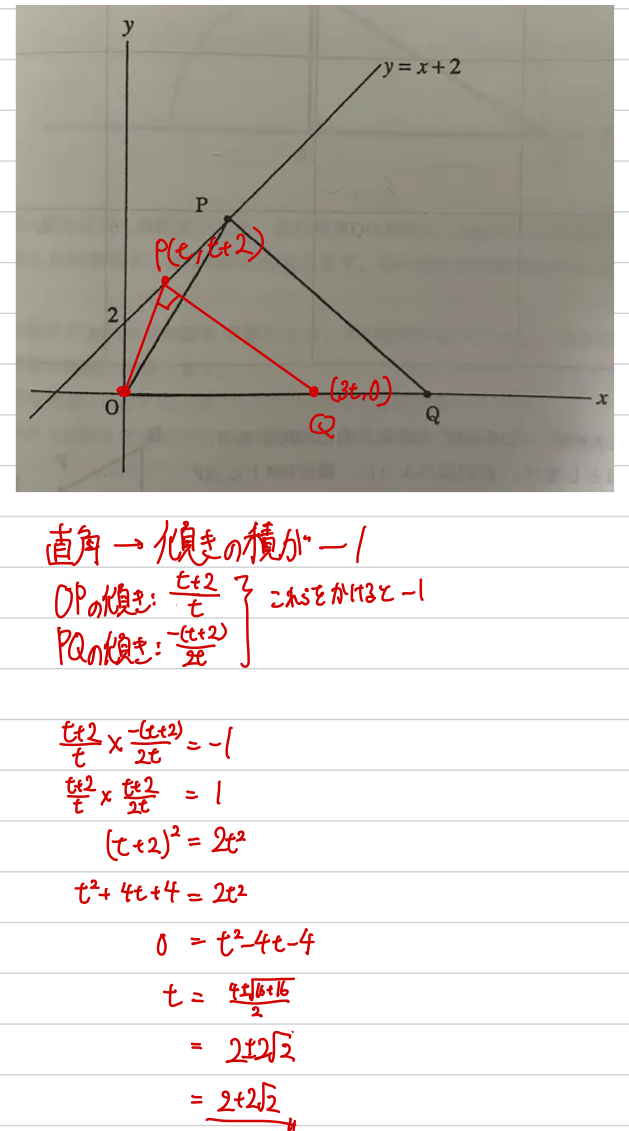 y
y = x + 2
P
P(t, t+2)
2
O
(3t, 0)
Q
Q
x
直角 → 傾きの積が -1
OPの傾き: (t+2)/t
PQの傾き: -(t+2)/2t
これらをかけると -1
(t+2)/t × -(t+2)/2t = -1
(t+2)/t × (t+2)/2t = 1
(t+2)² = 2t²
t² + 4t + 4 = 2t²
0 = t² - 4t - 4
t = (4±√16+16)/2
= 2±2√2
= 2+2√2